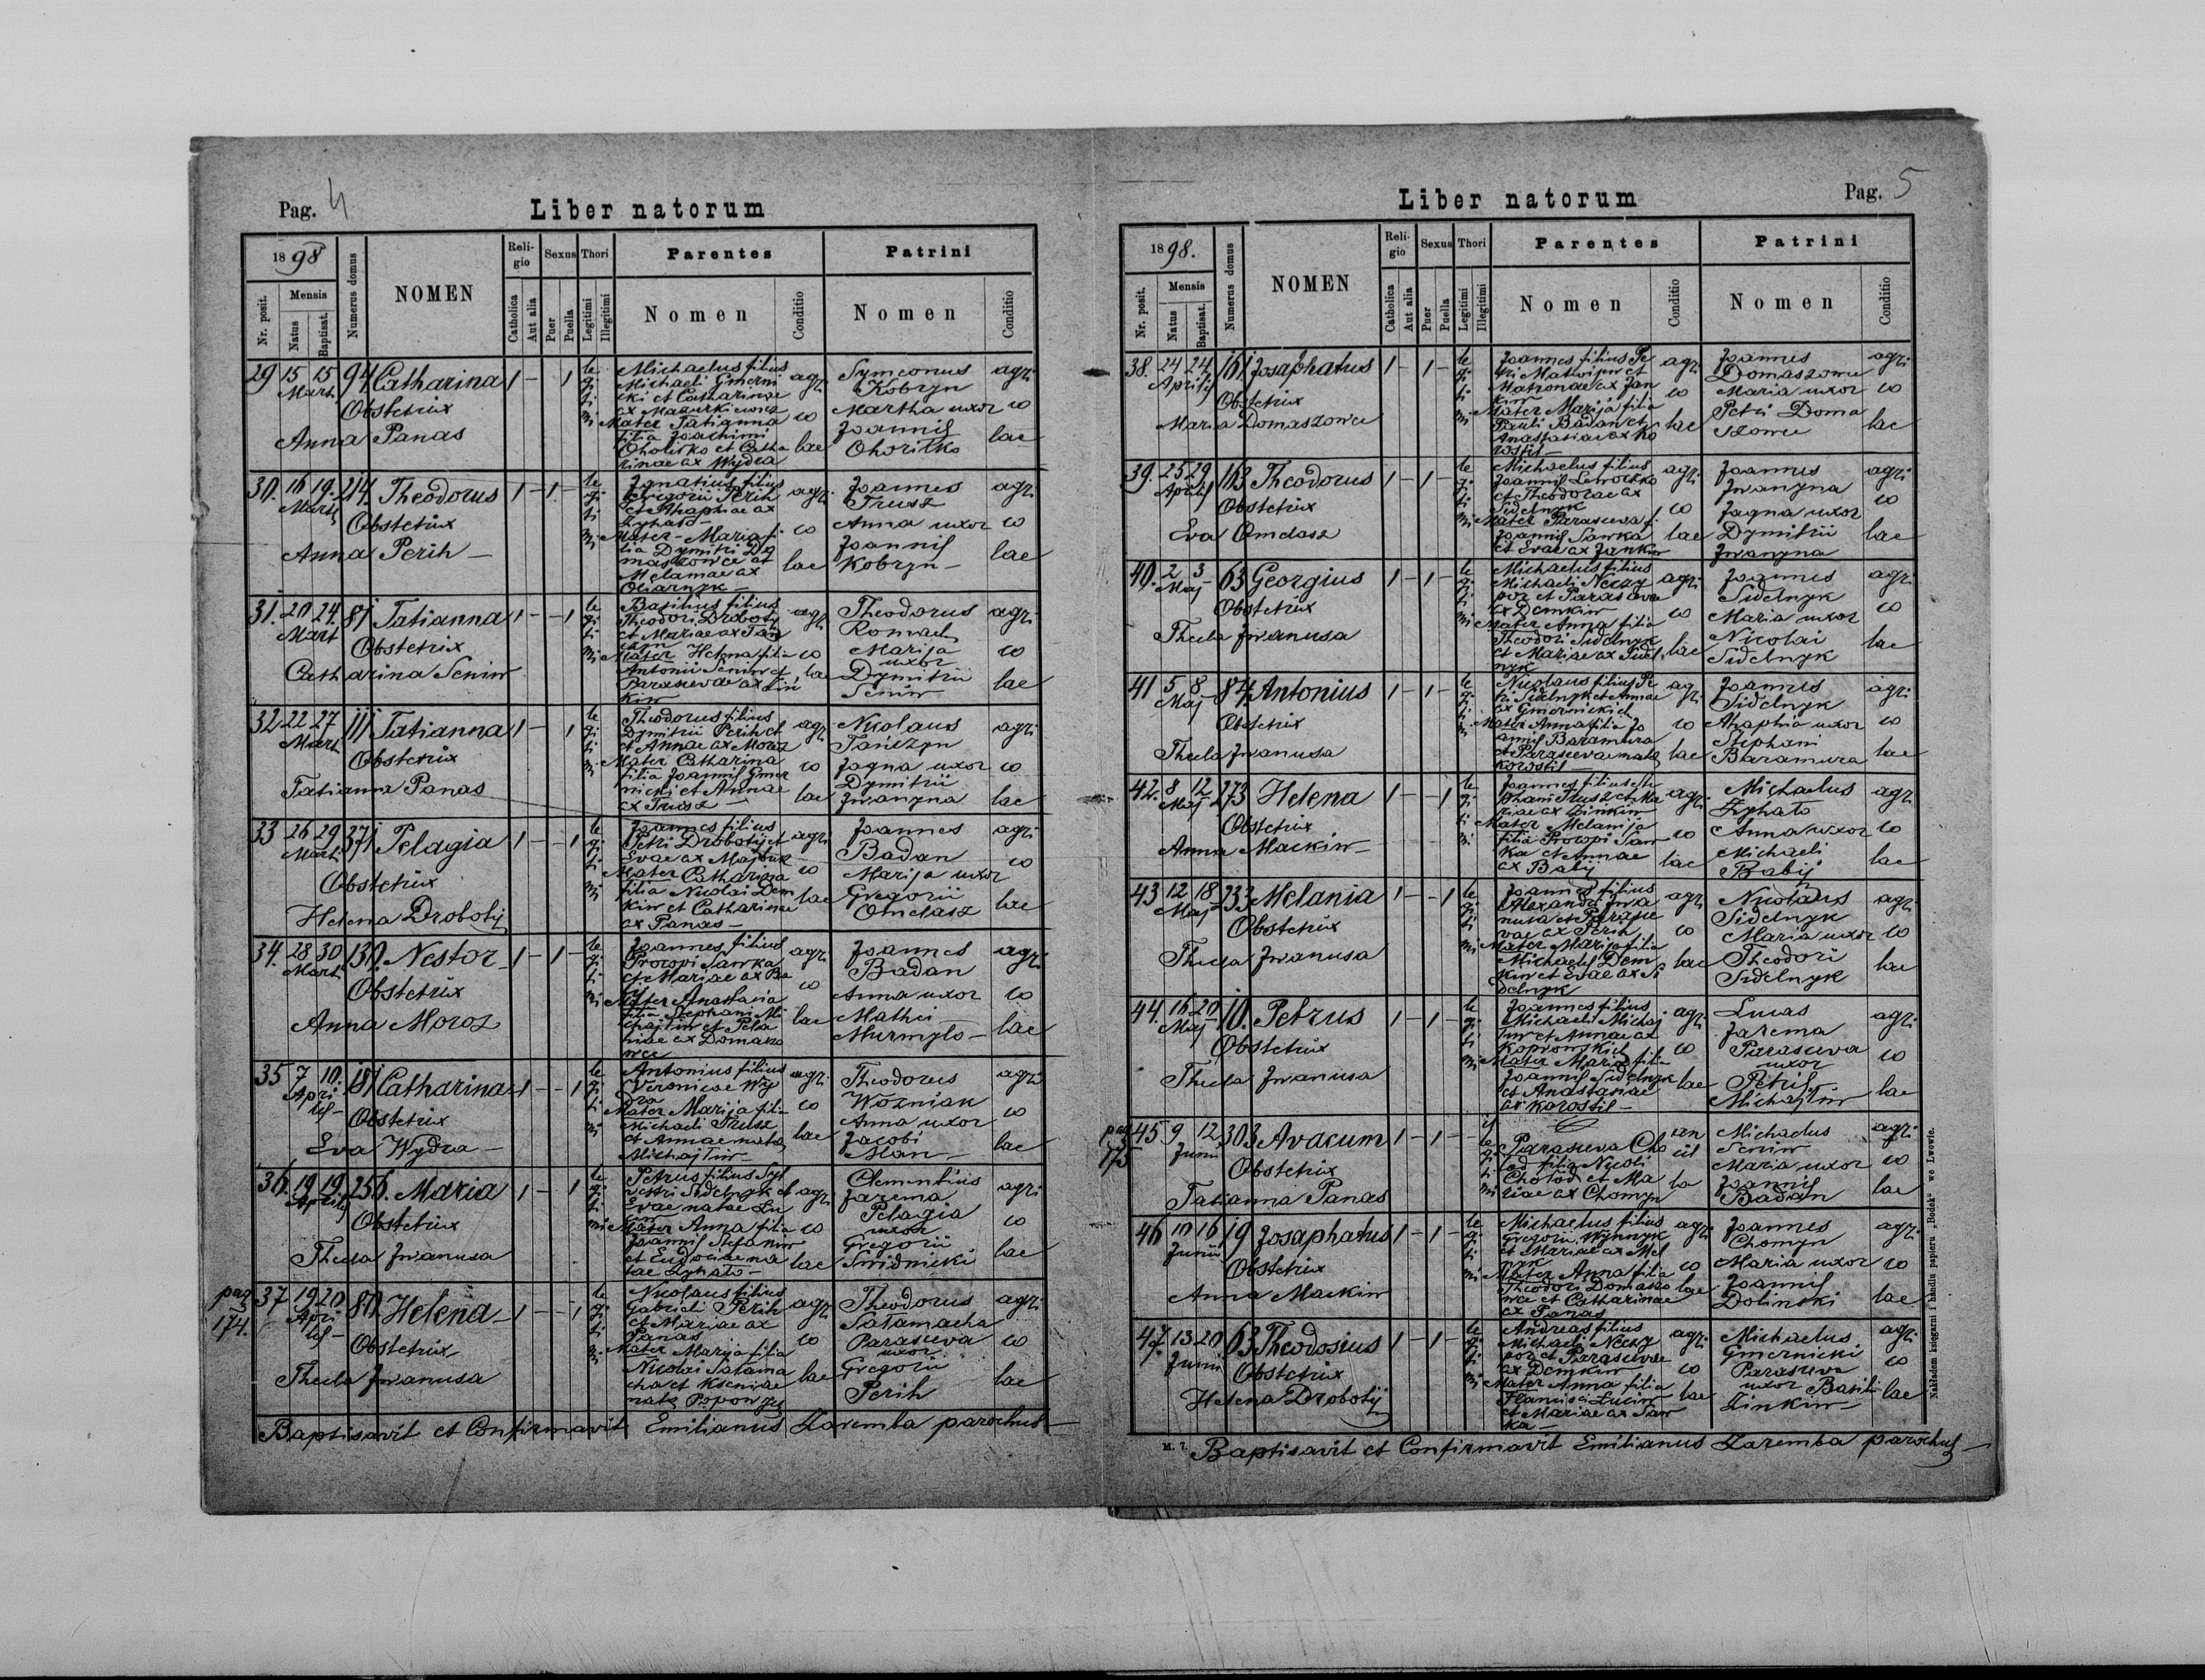 Pag. 4
Liber natorum
1898
Numerus domus
NOMEN
Religio
Sexus
Thori
Parentes
Patrini
Nr. posit.
Mensis
Natus
Baptisat.
Catholica
Aut alia
Puer
Puella
Legitimi
Illegitimi
Nomen
Conditio
Nomen
Conditio
29 15 15 94 Catharina 1 - 1
Mart.
Obstetrix
Anna Panas
legitimi
Michaelus filius
Michaeli Gmerni
cki et Catharinae
ex Mazurkiewicz
Mater Tatianna
filia Joachimi
Ohorilko et Catha
rinae ex Wydra
agricolae
Symeonus
Kobryn
Martha uxor
Joannis
Ohorilko
agricolae
30. 16 19. 214. Theodorus 1 - 1 -
Martij
Obstetrix
Anna Perih -
legitimi
Ignatius filius
Gregorii Perih
et Ahaphiae ex
Zyhalo -
Mater - Maria fi
lia Dymitri Do
maszowce et
Melaniae ex
Oliarnyk -
agricolae
Joannes
Trusz
Anna uxor
Joannis
Kobryn -
agricolae
31. 20 24. 81 Tatianna 1 - - 1
Mart
Obstetrix
Catharina Seniw
legitimi
Basilius filius
Theodori Drobotij
et Mariae ex Tan
czyn
Mater Helena filia
Antonii Seniw et
Parascevae ex Zin
kiw
agricolae
Theodorus
Romach
Marija
uxor
Dymitrii
Seniw
agricolae
32 22 27 111 Tatianna 1 - 1
Mart.
Obstetrix
Tatianna Panas
legitimi
Theodorus filius
Dymitrii Perih et
et Annae ex Moroz
Mater Catharina
filia Joannis Gmer
nicki et Annae
ex Trusz -
agricolae
Nicolaus
Tańczyn
Jagna uxor
Dymitrii
Iwanyna
agricolae
33 26 29 371 Pelagia 1 - - 1
Mart.
Obstetrix
Helena Drobotij
legitimi
Joannes filius
Petri Drobotij et
Evae ex Majbuk
Mater Catharina
filia Nicolai Dem
kiw et Catharinae
ex Panas -
agricolae
Joannes
Badan
Marija uxor
Gregorii
Omelasz
agricolae
34. 28 30 130. Nestor 1 - 1 -
Mart.
Obstetrix
Anna Moroz
legitimi
Joannes filius
Procopi Sawka
et Mariae ex Ba
bij
Mater Anastasia
filia Stephani Mi
chajliw et Pela
giae ex Domaszo
wce
agricolae
Joannes
Badan
Anna uxor
Mathei
Murmylo -
agricolae
35 7 10. 181 Catharina 1 - - 1
Aprilis -
Obstetrix
Eva Wydra -
legitimi
Antonius filius
Veronicae Wy
dra
Mater Marija filia
Michaeli Trusz
et Annae nata
Michajliw -
agricolae
Theodorus
Wozniak
Anna uxor
Jacobi
Man -
agricolae
36. 19 19. 256. Maria 1 - 1
Aprilij
Obstetrix
Thecla Iwanusa
legitimi
Petrus filius Syl
vestri Sidelnyk et
Evae natae Lu
Mater Anna filia
Joannis Stefaniw
et Eudociae na
tae Zyhalo -
agricolae
Clementius
Jarema
Pelagia
uxor
Gregorii
Swidnicki
agricolae
pag 174.
37 19 20 80. Helena 1 - - 1
Aprilis -
Obstetrix
Thecla Iwanusa
legitimi
Nicolaus filius
Gabrieli Perih
et Mariae ex
Panas
Mater Marija filia
Nicolai Salama
cha et Kseniae
nata Popowycz
agricolae
Theodorus
Salamacha
Parasceva
uxor
Gregorii
Perih
agricolae
Baptisavit et Confirmavit Emilianus Zaremba parochus -
Liber natorum
Pag. 5
1898.
Numerus domus
NOMEN
Religio
Sexus
Thori
Parentes
Patrini
Nr. posit.
Mensis
Natus
Baptisat.
Catholica
Aut alia
Puer
Puella
Legitimi
Illegitimi
Nomen
Conditio
Nomen
Conditio
38. 24 24 161 Josaphatus 1 - 1 -
Aprilij
Obstetrix
Maria Domaszowce
legitimi
Joannes filius Pe
tri Matwijiw et
Matronae ex Jan
kiw
Mater Marija filia
Pauli Badan et
Anastasiae ex Ko
rostil -
agricolae
Joannes
Domaszowce
Maria uxor
Petri Doma
szowce
agricolae
39. 25 29. 163 Theodorus 1 - 1 -
Aprilij
Obstetrix
Eva Omelasz
legitimi
Michaelus filius
Joannis Leworko
et Theodorae ex
Sidelnyk
Mater Parasceva f.
Joannis Sawka
et Evae ex Jankiw
agricolae
Joannes
Iwanyna
Jagna uxor
Dymitrii
Iwanyna
agricolae
40. 2 3 63 Georgius 1 - 1 -
Maj -
Obstetrix
Thecla Iwanusa
legitimi
Michaelus filius
Michaeli Neczy
por et Parasceva
ex Demkiw
Mater Anna filia
Theodori Sidelnyk
et Mariae ex Sidel
nyk
agricolae
Joannes
Sidelnyk
Maria uxor
Nicolai
Sidelnyk
agricolae
41 5 8 84 Antonius 1 - 1 -
Maj -
Obstetrix
Thecla Iwanusa
legitimi
Nicolaus filius Pe
tri Sidelnyk et Annae
ex Gmernickich
Mater Anna filia Jo
annis Baramura
et Parascevae nata
Korostil -
agricolae
Joannes
Sidelnyk
Ahaphia uxor
Stephani
Baramura
agricolae
42. 8 12 273 Helena 1 - - 1
Maj -
Obstetrix
Anna Mackiw -
legitimi
Joannes filius Ste
phani Trusz et Ma
riae ex Zinkiw
Mater Melanija
filia Procopi Saw
ka et Annae
ex Babij
agricolae
Michaelus
Zyhalo
Anna uxor
Michaeli
Babij
agricolae
43 12 18 233 Melania 1 - - 1
Maj -
Obstetrix
Thecla Iwanusa
legitimi
Joannes filius
Alexandri Iwa
nusa et Parasce
vae ex Perih
Mater Marija filia
Michaelis Dem
kiw et Evae ex Si
delnyk
agricolae
Nicolaus
Sidelnyk
Maria uxor
Theodori
Sidelnyk
agricolae
44. 16 20 10. Petrus 1 - 1 -
Maj
Obstetrix
Thecla Iwanusa
legitimi
Joannes filius
Michaeli Michaj
liw et Annae ex
Koprowskich
Mater Maria filia
Joannis Sidelnyk
et Anastasiae
ex Korostil -
agricolae
Lucas
Jarema
Parasceva
uxor
Petris
Michajliw
agricolae
pag 175
45 9 12 303 Avacum 1 - 1 -
Junii
Obstetrix
Tatianna Panas
illegitimi
Parasceva Cho
lod filia Nicoli
Cholod et Ma
riae ex Chomyn
ancilla
Michaelus
Seniw
Maria uxor
Joannis
Badan
agricolae
46 10 16 19 Josaphatus 1 - 1 -
Junii
Obstetrix
Anna Mackiw
legitimi
Michaelus filius
Gregorii Wynnyk
et Mariae ex Mel
nyk
Mater Anna filia
Theodori Domaszo
wce et Catharinae
ex Panas
agricolae
Joannes
Chomyn
Maria uxor
Joannis
Dolinski
agricolae
47. 13 20 63 Theodosius 1 - 1 -
Junii
Obstetrix
Helena Drobotij
legitimi
Andreas filius
Michaeli Neczy
por et Parascevae
ex Demkiw
Mater Anna filia
Francisci Luciw
et Mariae ex Saw
ka -
agricolae
Michaelus
Gmernicki
Parasceva
uxor Basili
Zinkiw -
agricolae
M. 7. Baptisavit et Confirmavit Emilianus Zaremba parochus -
Nakładem księgarni i handlu papieru „Bodek“ we Lwowie.